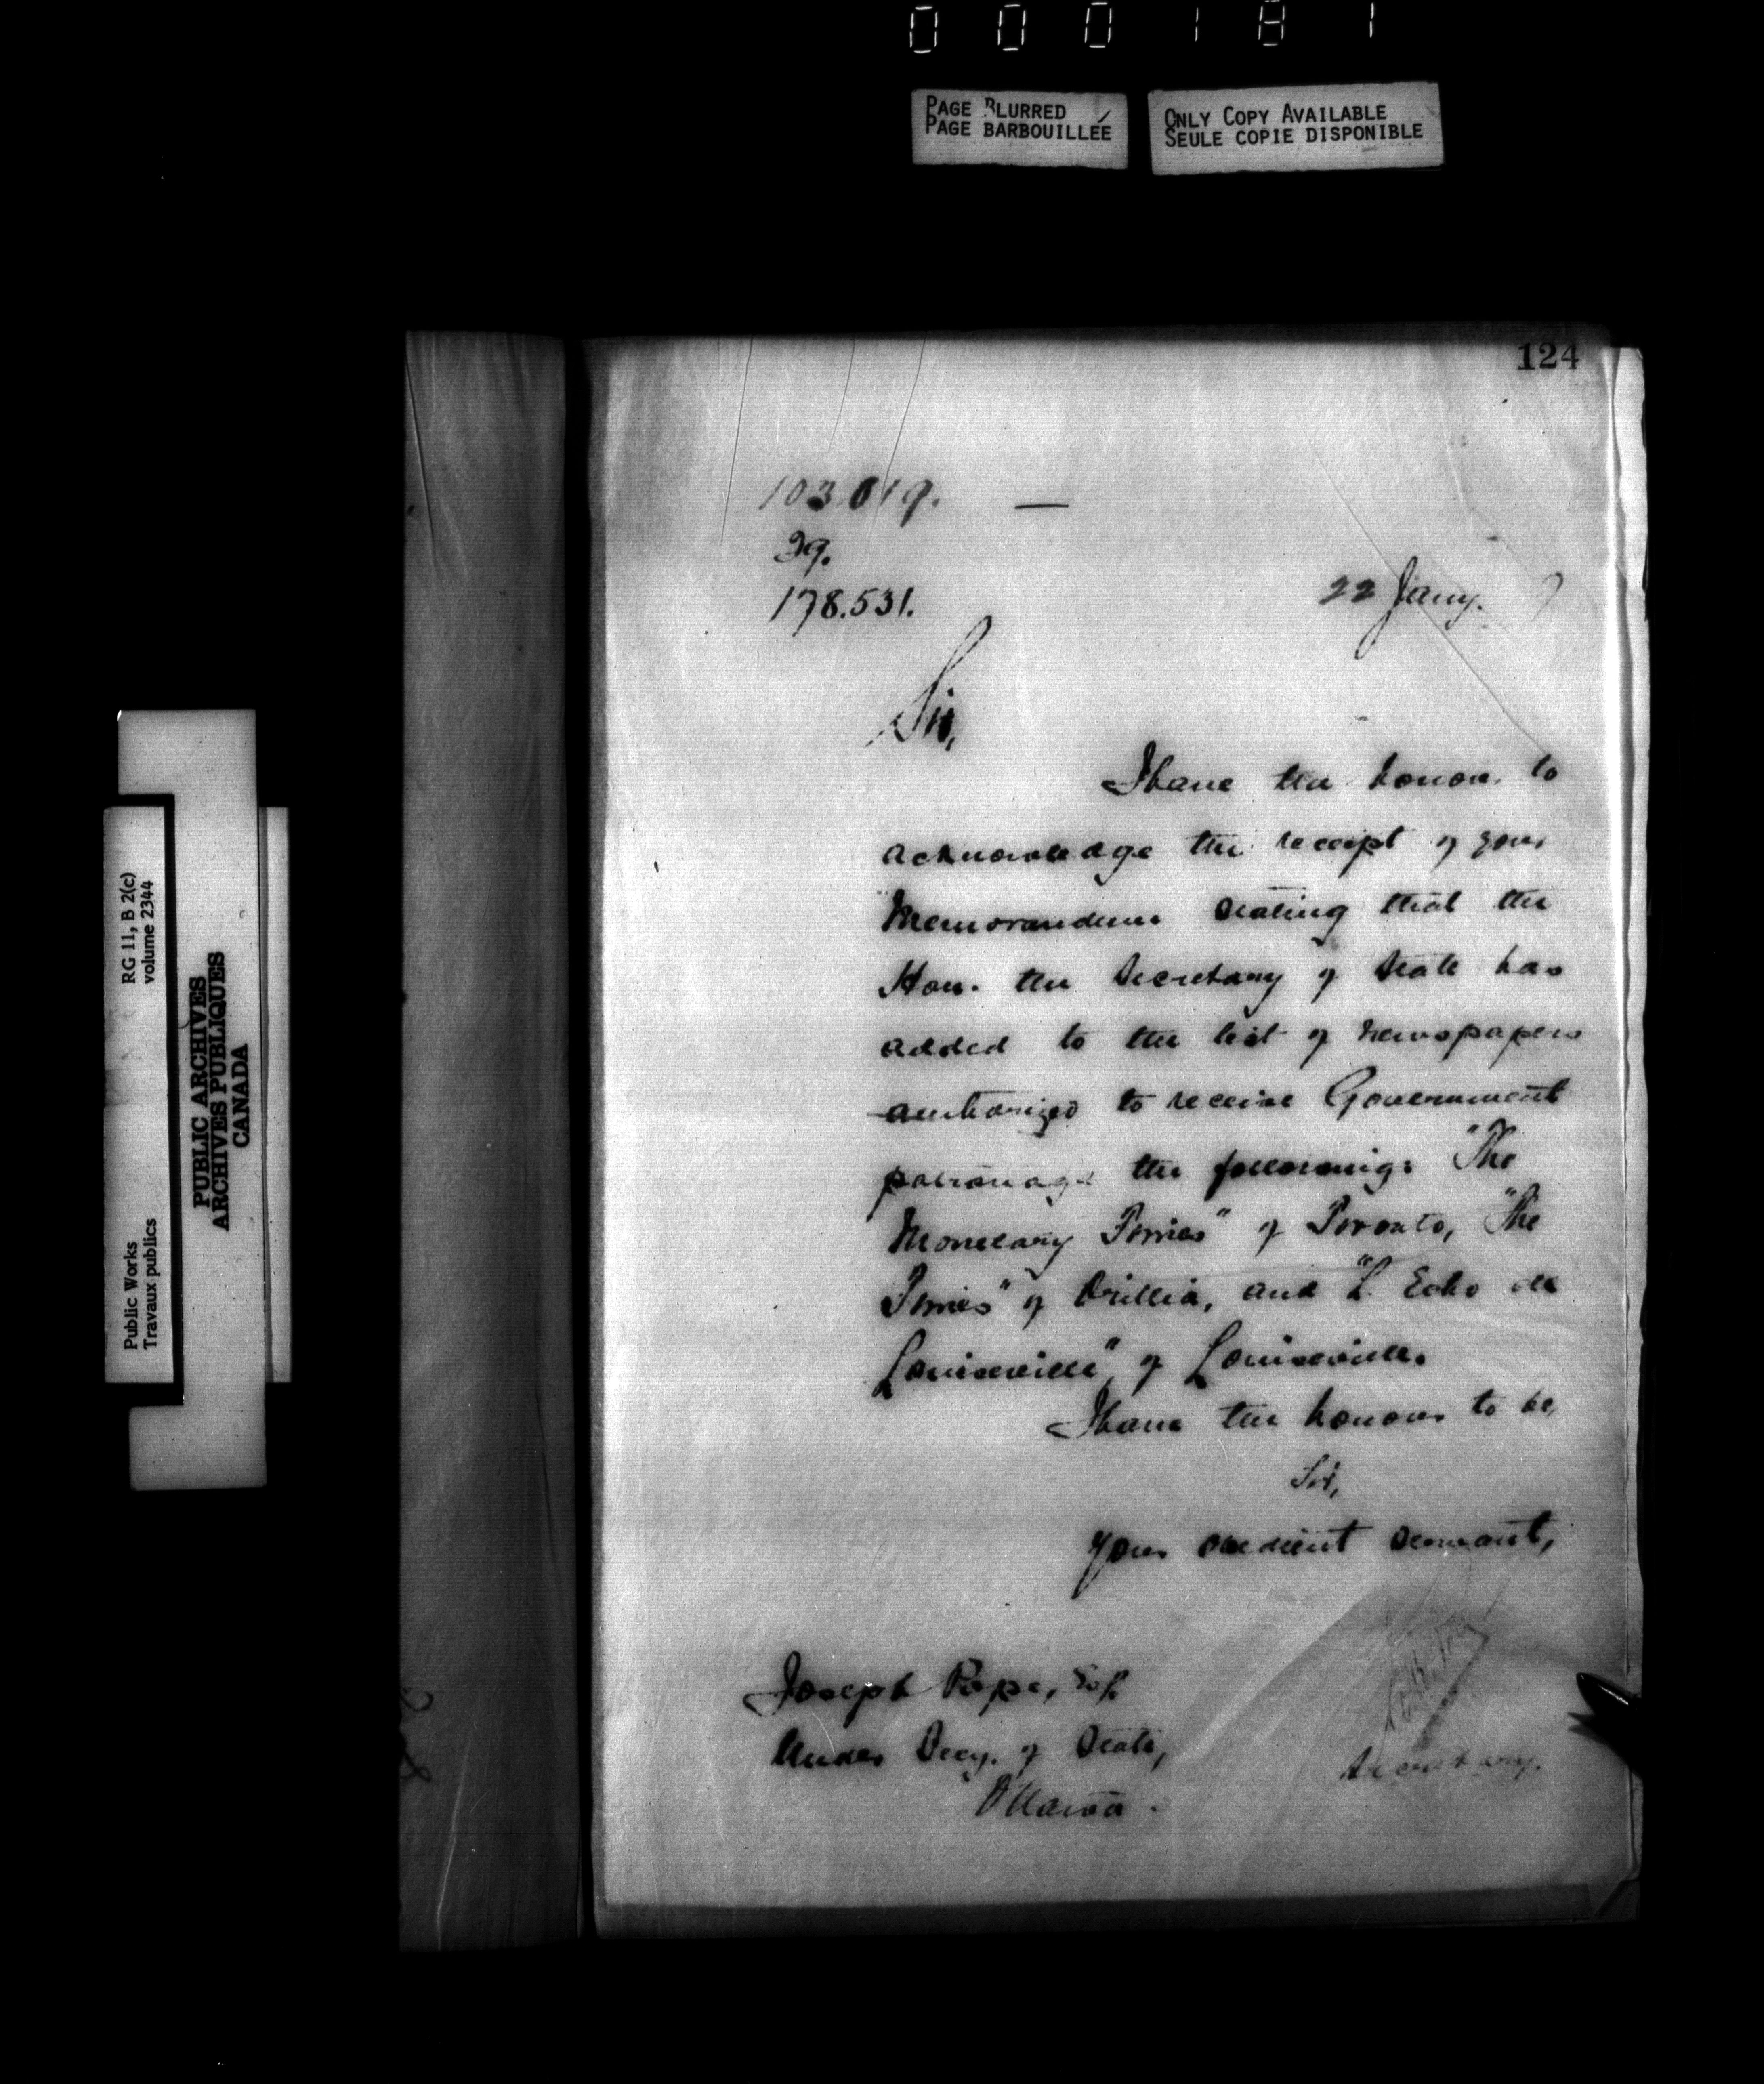 000181
PAGE BLURRED
PAGE BARBOUILLÉE
ONLY COPY AVAILABLE
SEULE COPIE DISPONIBLE
RG 11, B 2(c)
volume 2344
Public Works
Travaux publics
PUBLIC ARCHIVES
ARCHIVES PUBLIQUES
CANADA
124
103019.
29.
178.531.
22 Jany.
Sir,
I have the honour to
acknowledge the receipt of your
Memorandum stating that the
Hon. the Secretary of State has
added to the list of newspapers
authorized to receive Government
patronage the following: "The
Monetary Times" of Toronto, "The
Times" of Orillia, and "L'Echo de
Louiseville" of Louiseville.
I have the honour to be,
Sir,
Your obedient servant,
Joseph Pope, Esq.
Under Secy. of State,
Ottawa.
Secretary.